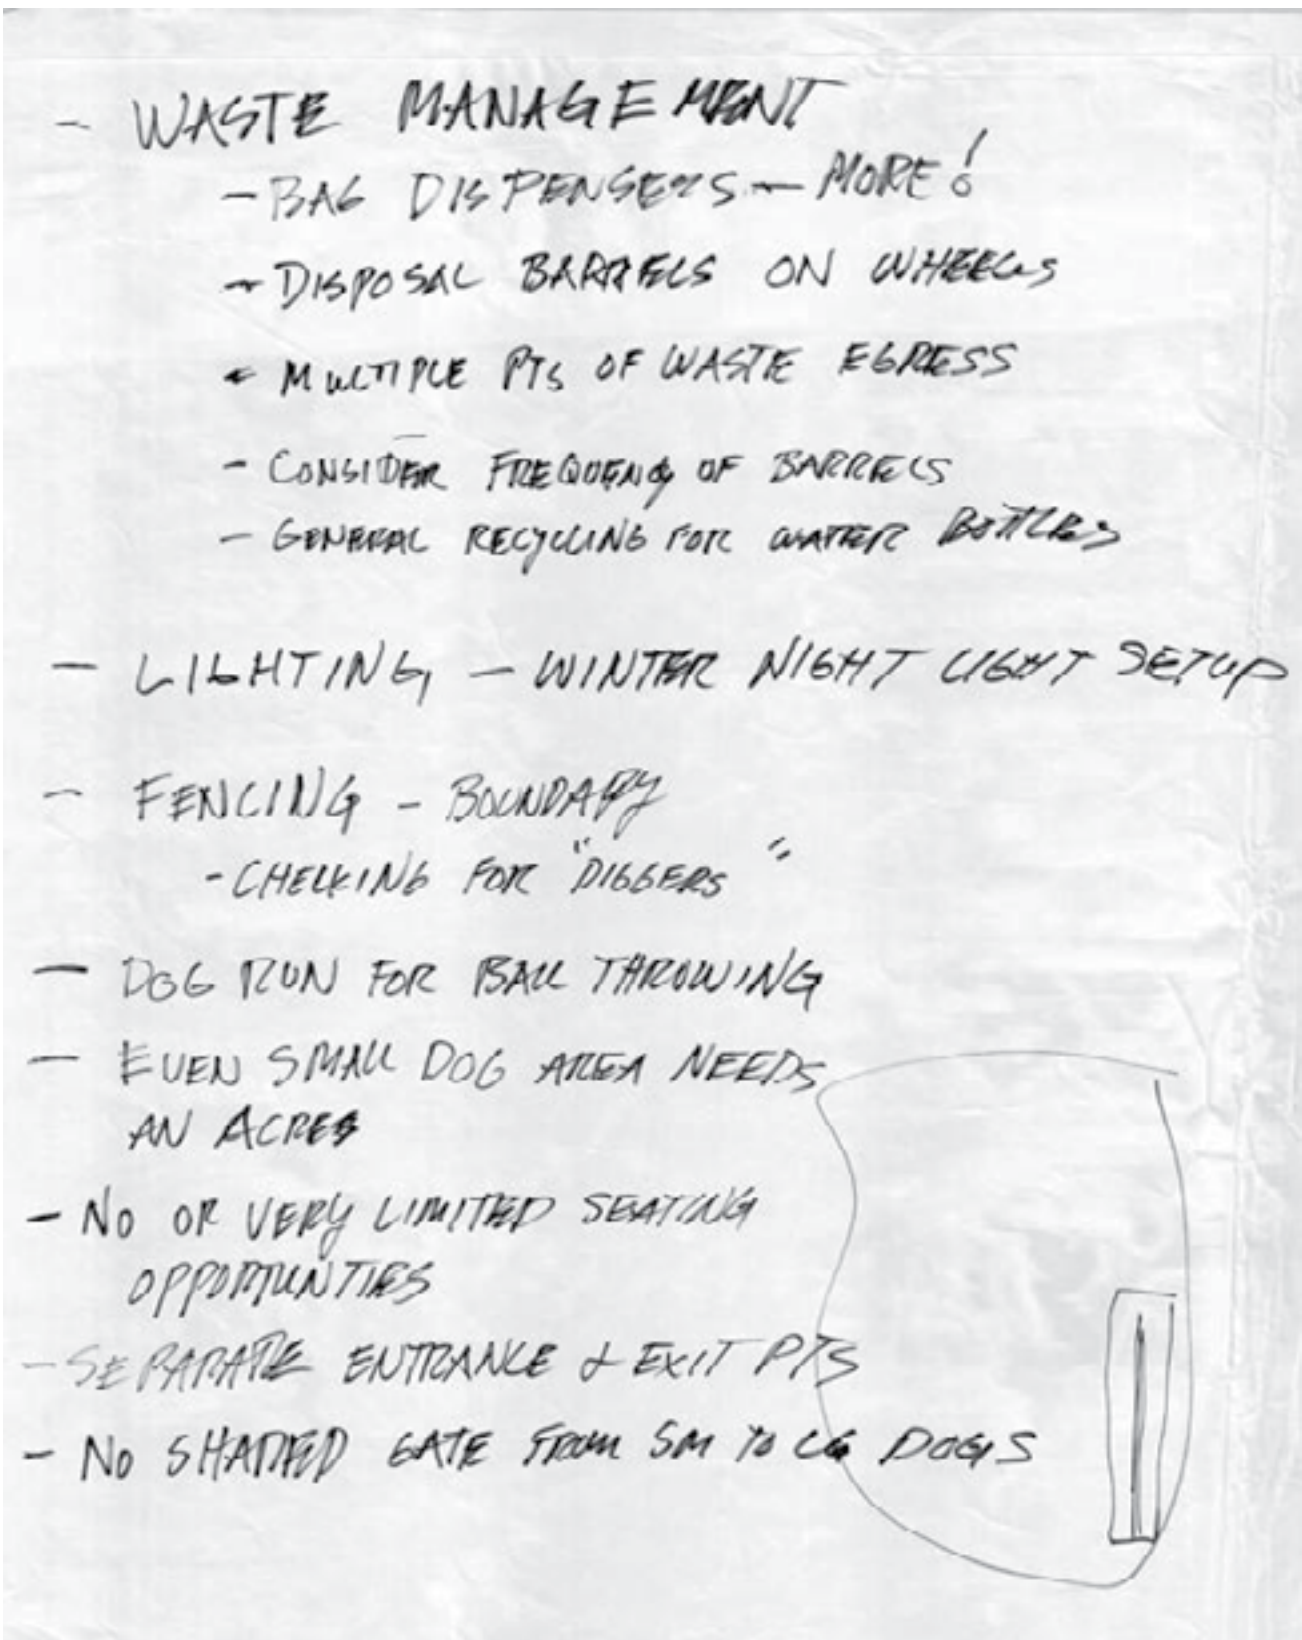 - WASTE MANAGEMENT
- BAG DISPENSERS - MORE!
- DISPOSAL BARRELS ON WHEELS
- MULTIPLE PTS OF WASTE EGRESS
- CONSIDER FREQUENCY OF BARRELS
- GENERAL RECYCLING FOR WATER BOTTLES
- LIGHTING - WINTER NIGHT LIGHT SETUP
- FENCING - BOUNDARY
- CHECKING FOR "DIGGERS"
- DOG RUN FOR BALL THROWING
- EVEN SMALL DOG AREA NEEDS
AN ACRES
- NO OR VERY LIMITED SEATING
OPPORTUNTIES
- SEPARATE ENTRANCE & EXIT PTS
- NO SHARED GATE FROM SM TO LG DOGS